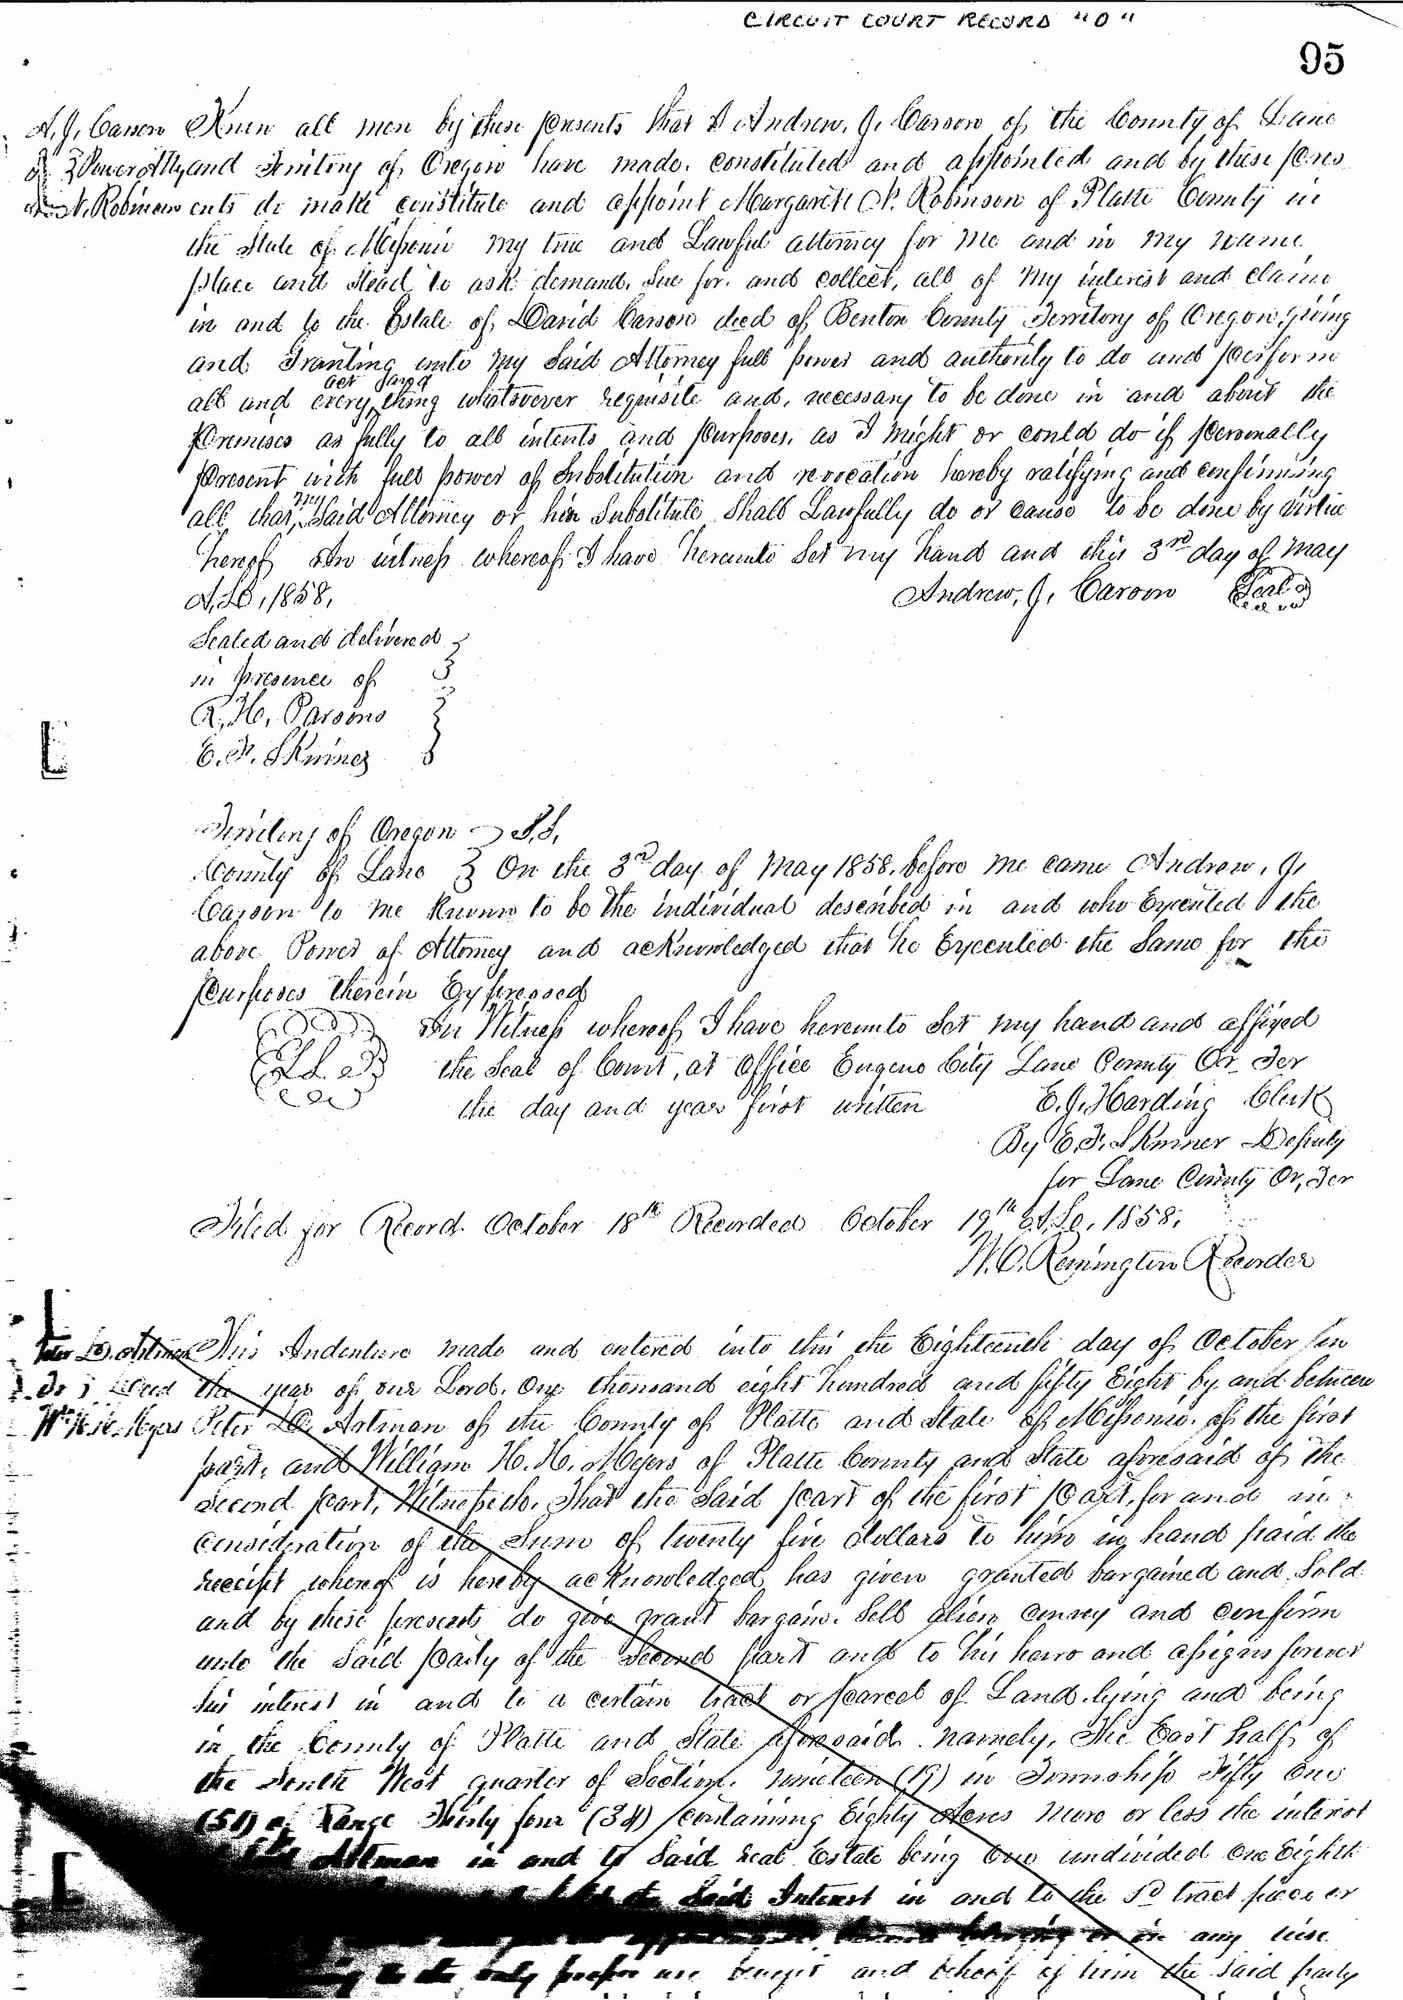 CIRCUIT COURT RECORD "O"
95
A. J. Carson Know all men by these presents that I Andrew. J. Carson of the County of Lane
Power Atty and Territory of Oregon have made. constituted and appointed and by these pres
N. Robinson ents do make constitute and appoint Margarett N. Robinson of Platte County in
the State of Missouri my true and Lawful attorney for me and in my name
place and stead, to ask demand, Sue for. and collect, all of my interest and claim
in and to the Estate of David Carson decd of Benton County Territory of Oregon, giving
and Granting unto my Said Attorney full power and authority to do and perform
act and
all and every thing whatsoever requisite and, necessary to be done in and about the
premises as fully to all intents and purposes. as I might or could do if personally
present with full power of Substitution and revocation hereby ratifying and confirming
my
all that Said Attorney or his Substitute Shall Lawfully do or cause to be done by virtue
hereof In witness whereof I have hereunto Set my hand and this 3rd day of May
A.D. 1858. Andrew. J. Carson Seal
Sealed and delivered
in presence of
R. H. Parsons
E. F. Skinner
Territory of Oregon S.S.
County of Lane On the 3rd day of May 1858. before me came Andrew. J.
Carson to me Known to be the individual described in and who Executed the
above Power of Attorney and acknowledged that he Executed the Same for the
purposes therein Expressed
In Witness whereof I have hereunto Set my hand and affixed
the Seal of Court, at office Eugene City Lane County Or. Ter
the day and year first written E. J. Harding Clerk
By E. F. Skinner Deputy
for Lane County Or. Ter
Filed for Record October 18th Recorded October 19th A.D. 1858.
W. O. Remington Recorder
Peter D. Artman This Indenture made and entered into this the Eighteenth day of October in
To Deed the year of our Lord. One thousand eight hundred and fifty Eight by and between
Wm H. H. Myers Peter D. Artman of the County of Platte and State of Missouri. of the first
part, and William H. H. Myers of Platte County and State aforesaid of the
Second part, Witnesseth. That the Said part of the first part, for and in
consideration of the Sum of twenty five dollars to him in hand paid the
receipt whereof is hereby acknowledged, has given granted bargained and Sold
and by these presents do give grant bargain. Sell alien convey and confirm
unto the Said party of the Second part and to his heirs and assigns forever
his interest in and to a certain tract or parcel of Land lying and being
in the County of Platte and State aforesaid namely, The East half of
the South West quarter of Section. nineteen (19) in Township Fifty One
(51) of Range Thirty four (34) containing Eighty Acres more or less the interest
Artman in and to Said real Estate being One undivided One Eighth
the Said Interest in and to the sd tract piece or
belonging or in any wise
to the only proper use benefit and behoof of him the Said party